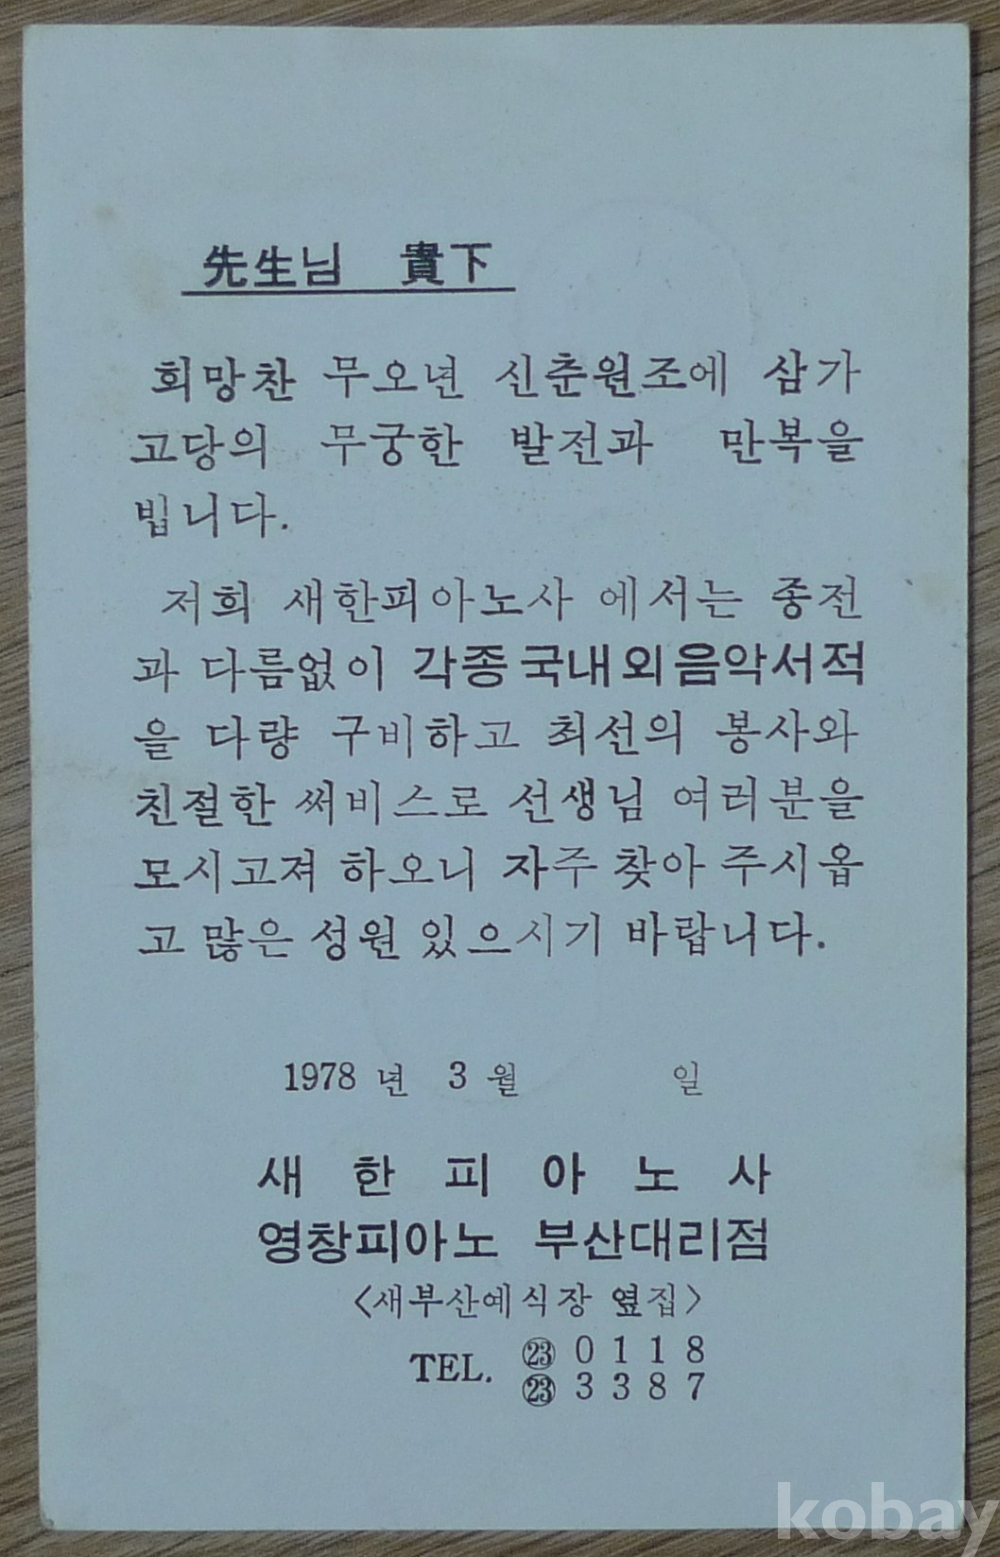 先生님 貴下
희망찬 무오년 신춘원조에 삼가
고당의 무궁한 발전과 만복을
빕니다.
저희 새한피아노사 에서는 종전
과 다름없이 각종국내외음악서적
을 다량 구비하고 최선의 봉사와
친절한 써비스로 선생님 여러분을
모시고져 하오니 자주 찾아 주시옵
고 많은 성원 있으시기 바랍니다.
1978 년 3 월 일
새 한 피 아 노 사
영창피아노 부산대리점
<새부산예식장 옆집>
TEL. ㉓ 0118
㉓ 3387
kobay